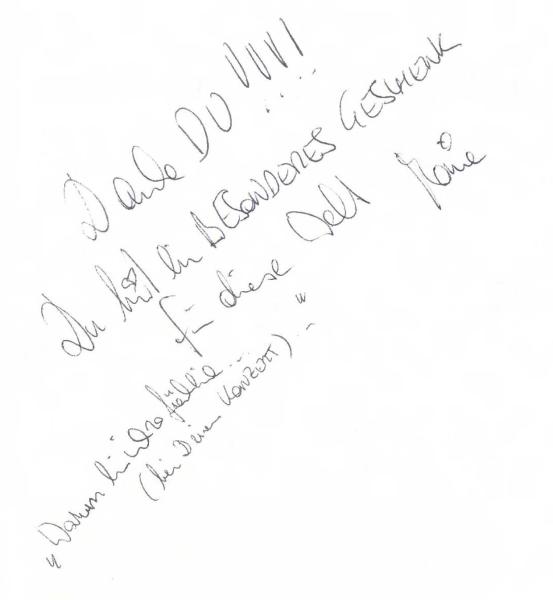 Danke DU !!!!
Du bist ein BESONDERES GESCHENK
für diese Welt
"Warum bin ich so fröhlich...
(bei Deinem KONZERT)..."